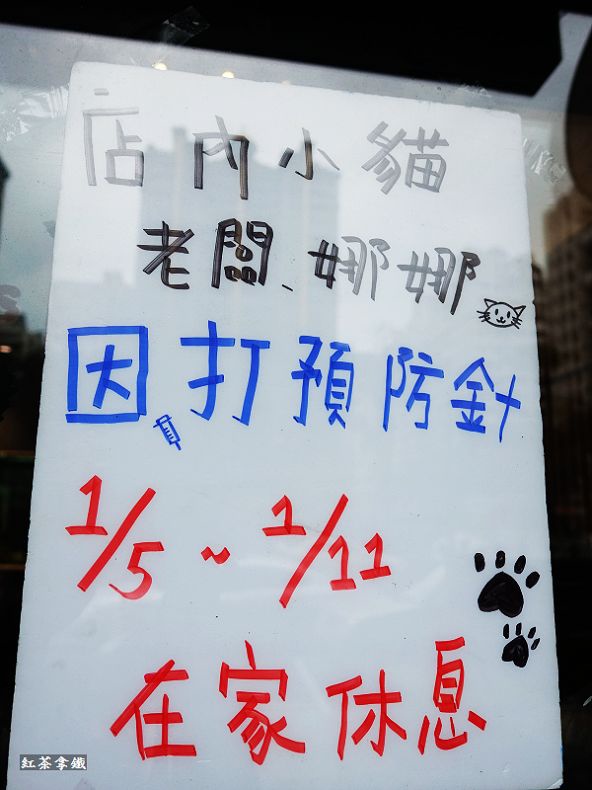 店內小貓
老闆、娜娜
因打預防針
1/5~1/11
在家休息
紅茶拿鐵